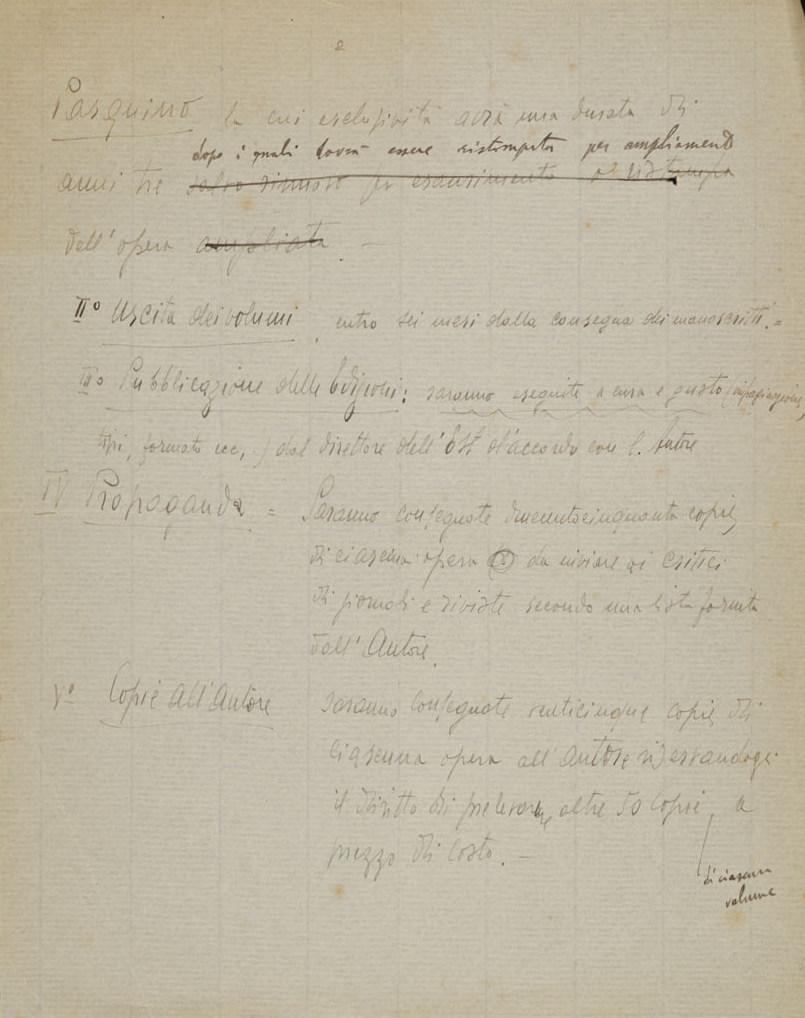 2
Pasquino la cui esclusività avrà una durata di
dopo i quali dovrà essere ristampata per ampliamenti
anni tre salvo rinnovo per esaurimento o ristampa
dell'opera ampliata. —
II° Uscita dei volumi, entro sei mesi dalla consegna dei manoscritti. =
III° Pubblicazione delle Edizioni: saranno eseguite a cura e gusto (
tipi, formato ecc,) dal direttore dell'Est d'accordo con l. Autore
IV Propaganda = Saranno consegnate duecentocinquanta copie,
di ciascuna opera da inviare ai critici
di giornali e riviste secondo una lista fornita
dall'Autore.
V° Copie all'Autore Saranno consegnate venticinque copie, di
ciascuna opera all'Autore riservandogli
il diritto di prelevare, altre 50 Copie, a
prezzo di costo. —
di ciascun
volume